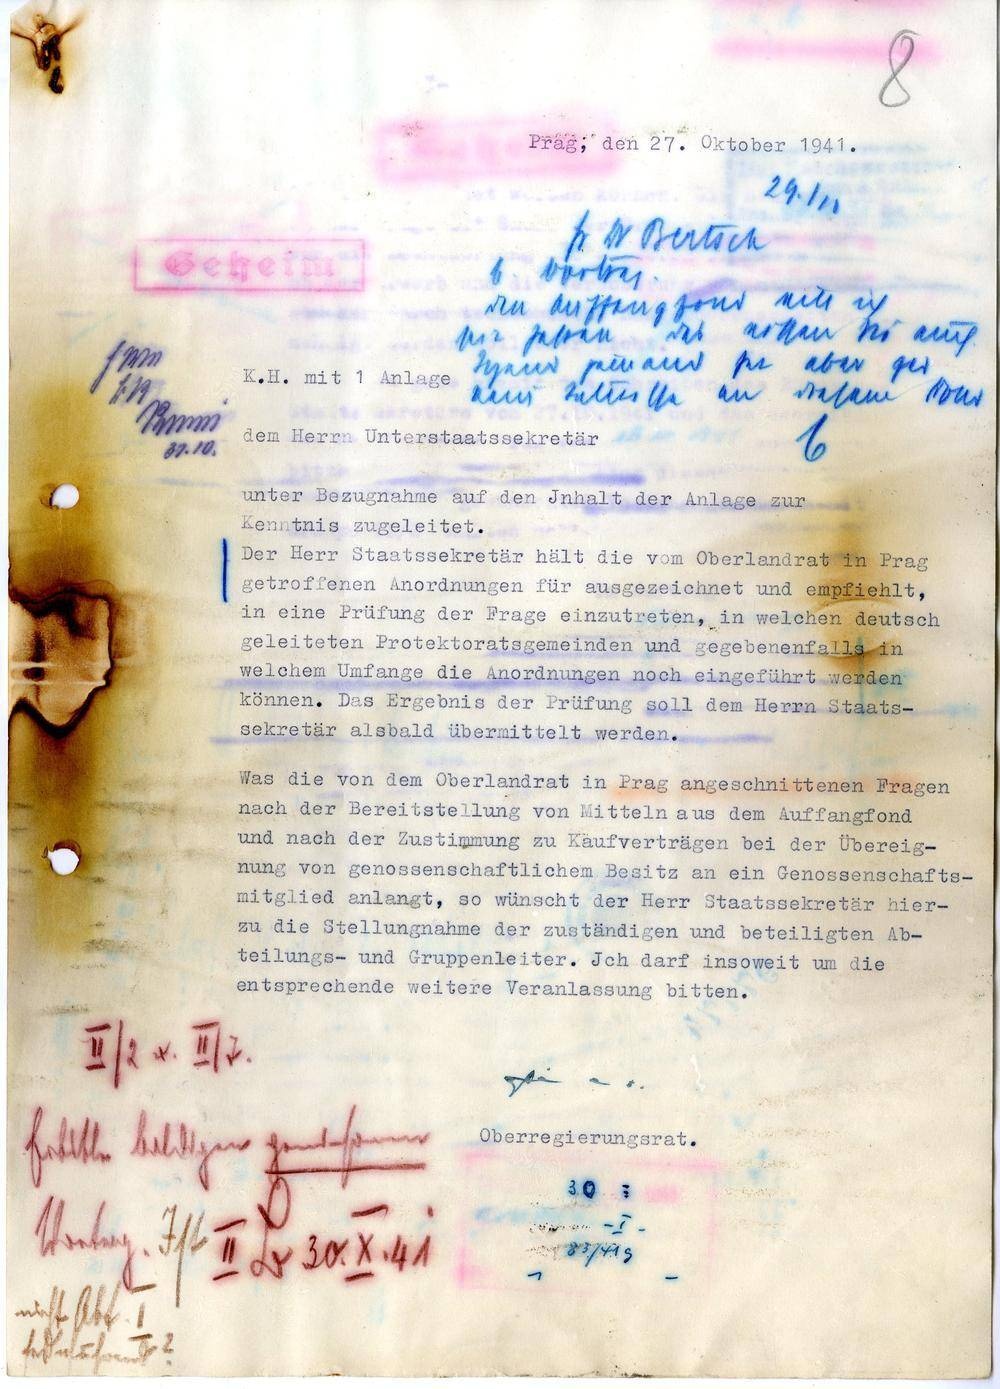 8
Prag, den 27. Oktober 1941.
29./10
Geheim
K.H. mit 1 Anlage
31.10.
dem Herrn Unterstaatssekretär
unter Bezugnahme auf den Jnhalt der Anlage zur
Kenntnis zugeleitet.
Der Herr Staatssekretär hält die vom Oberlandrat in Prag
getroffenen Anordnungen für ausgezeichnet und empfiehlt,
in eine Prüfung der Frage einzutreten, in welchen deutsch
geleiteten Protektoratsgemeinden und gegebenenfalls in
welchem Umfange die Anordnungen noch eingeführt werden
können. Das Ergebnis der Prüfung soll dem Herrn Staats-
sekretär alsbald übermittelt werden.
Was die von dem Oberlandrat in Prag angeschnittenen Fragen
nach der Bereitstellung von Mitteln aus dem Auffangfond
und nach der Zustimmung zu Kaufverträgen bei der Übereig-
nung von genossenschaftlichem Besitz an ein Genossenschafts-
mitglied anlangt, so wünscht der Herr Staatssekretär hier-
zu die Stellungnahme der zuständigen und beteiligten Ab-
teilungs- und Gruppenleiter. Jch darf insoweit um die
entsprechende weitere Veranlassung bitten.
II/2 u. II/7.
Oberregierungsrat.
30
-I-
83/41g
Vortrag. II 30.X.41
nicht Abt. I